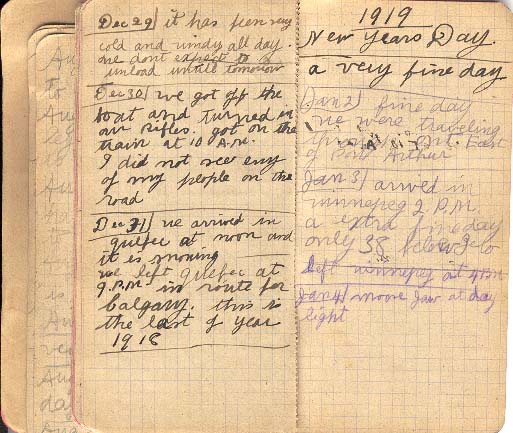 Dec 29 it has been very
cold and windy all day.
we dont expect to
unload untill tomorrow
Dec 30 we got off the
boat and turned in
our Rifles. got on the
train at 10 A.M.
I did not see eny
of my people on the
road
Dec 31 we arrived in
quebec at noon and
it is snowing
we left quebec at
9 P.M. in route for
Calgary. this is
the last of year
1918
1919
New Years Day.
a very fine day
Jan 2 fine day
we were traveling
East
of Port Arthur
Jan 3 arived in
winnepeg 2 P.M.
a extra fine day
only 38 below
left winnepeg at 4 P.M.
Jan 4 moose Jaw at day
light